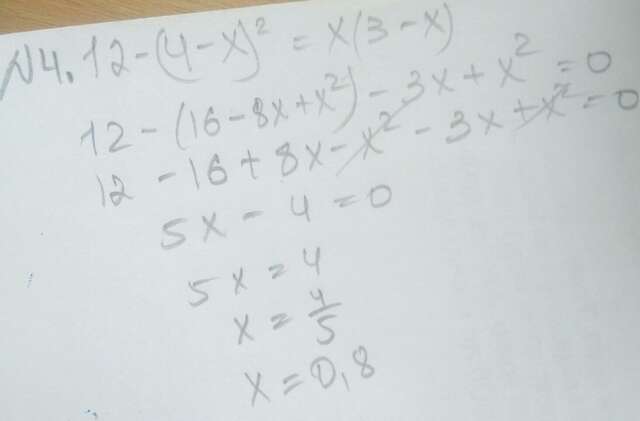 №4. 12-(4-x)² = x(3-x)
12-(16-8x+x²)-3x+x²=0
12-16+8x-x²-3x+x²=0
5x-4=0
5x=4
x=4/5
x=0,8